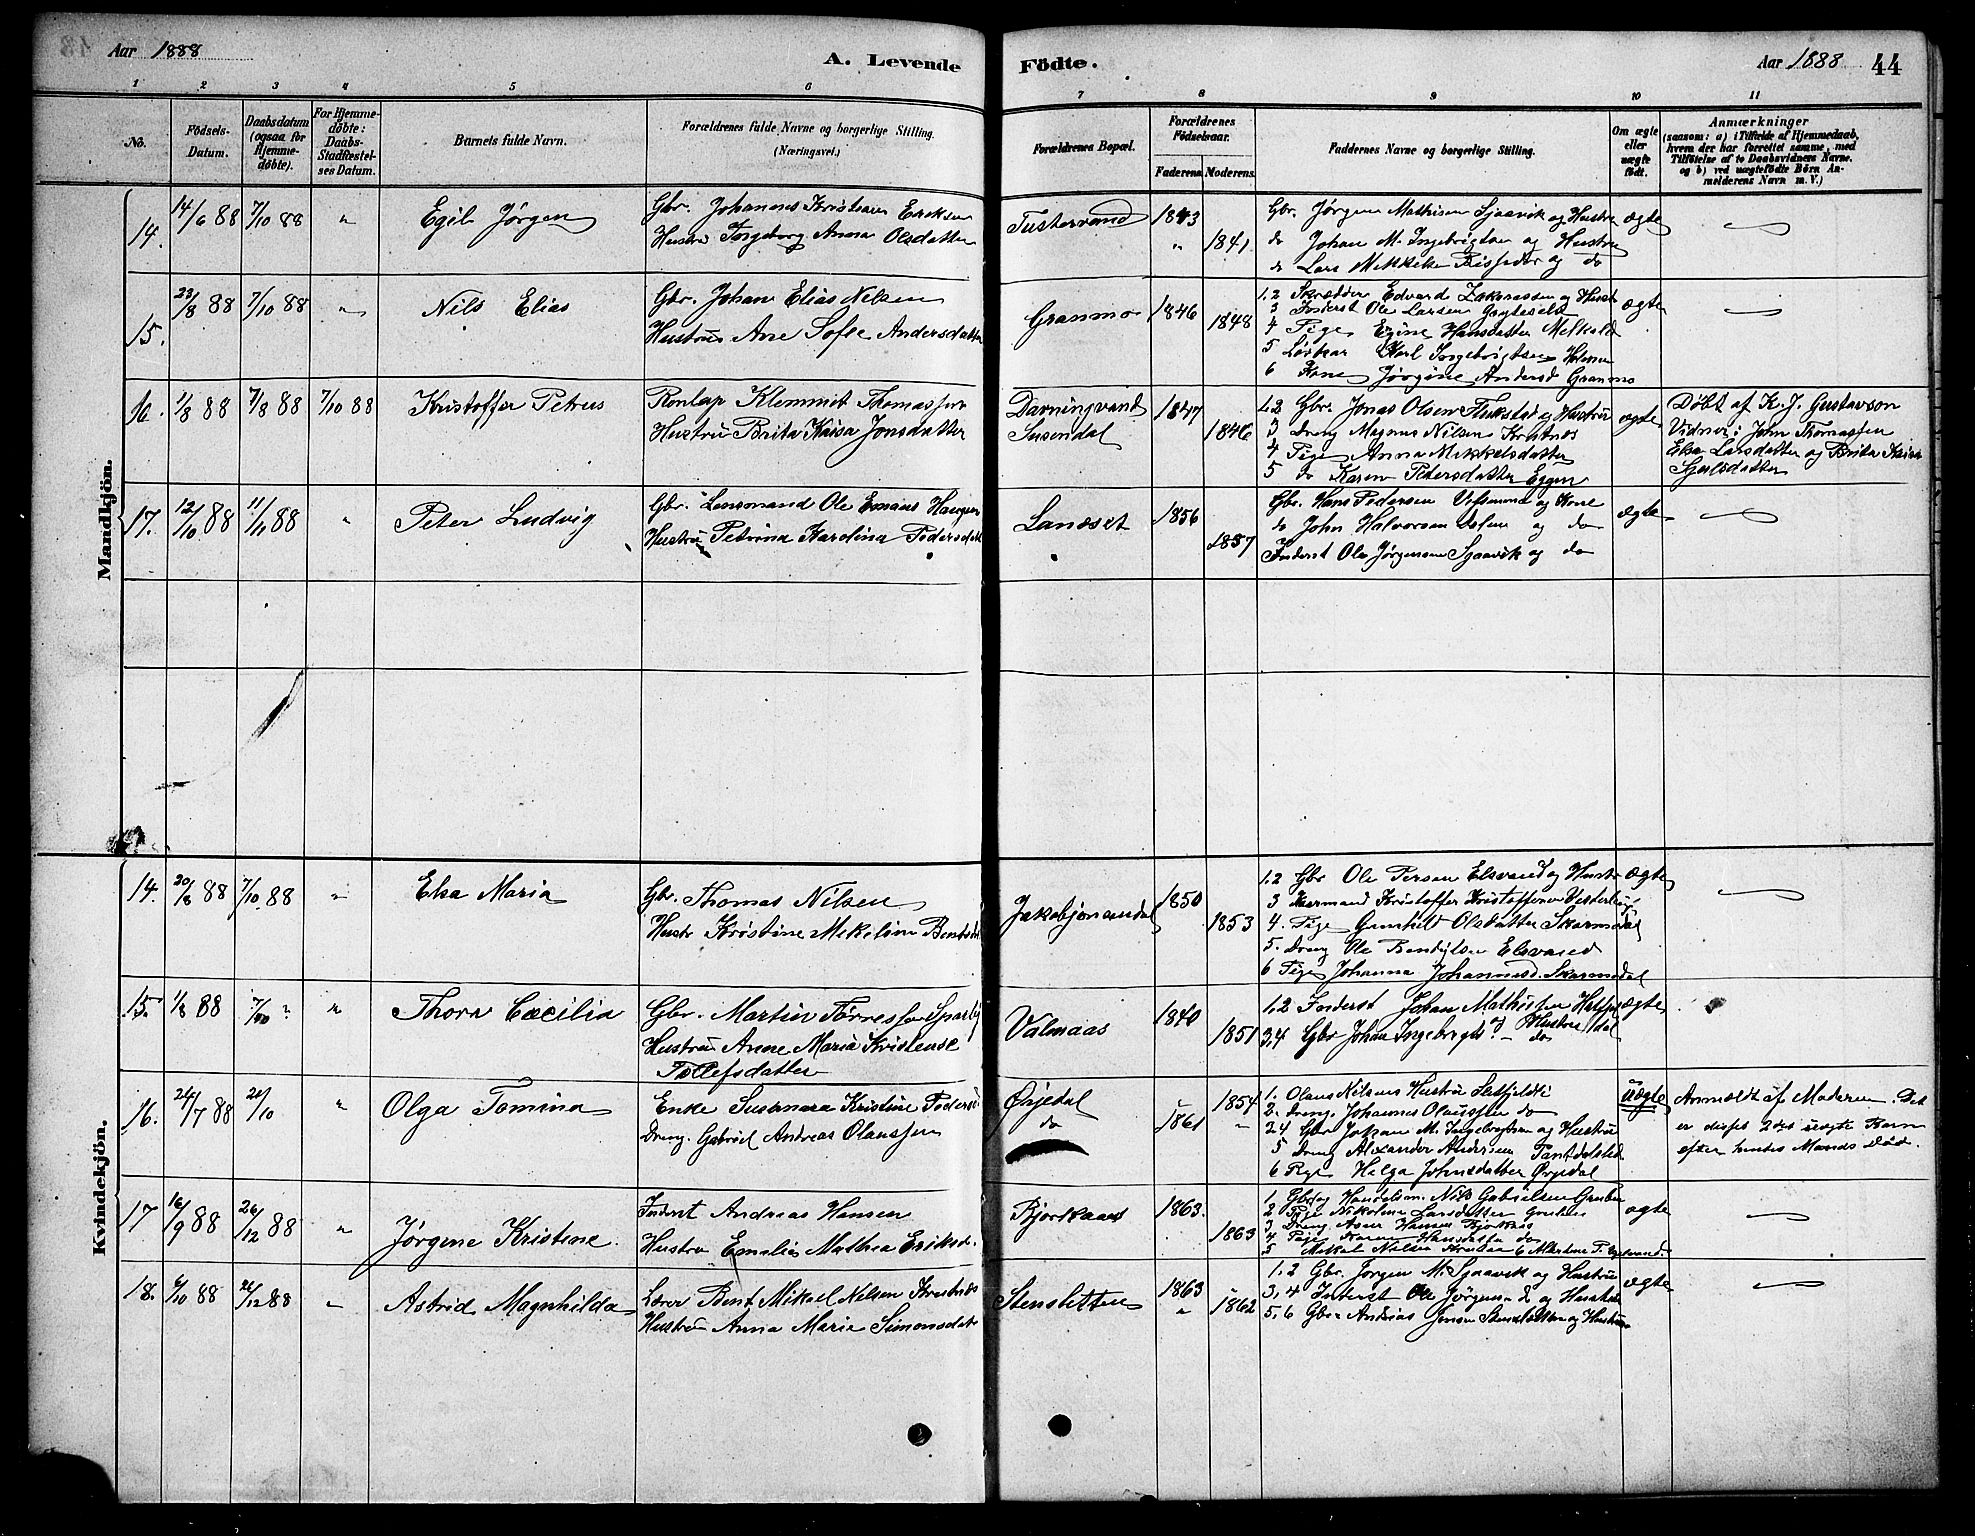 Aar 1888
A. Levende
Födte.
Aar 1888
44
1 2 3 4 5 6 7 8 9 10 11
No.
Födsels-
Datum.
Daabsdatum
(ogsaa for
Hjemme-
døbte).
For Hjemme-
døbte:
Daabs-
Stadfæstel-
ses Datum.
Barnets fulde Navn.
Forældrenes fulde Navne og borgerlige Stilling.
(Næringsvei.)
Forældrenes Bopæl.
Forældrenes
Födselsaar.
Faderens. Moderens.
Faddernes Navne og borgerlige Stilling.
Om ægte
eller
uægte
født.
Anmærkninger
(saasom: a) i Tilfælde af Hjemmedaab,
hvem der har forrettet samme, med
Tilföielse af to Daabsvidners Navne.
og b) ved uægtefödte Börn An-
melderens Navn m. V.)
Mandkjön.
14. 14/6 88 7/10 88 " Egil Jørgen
Gbr. Johannes Kristian Eriksen
Hustru Ingeborg Anna Olsdatter
Tustervand 1843 " 1841.
Gbr. Jørgen Mathisen Sjaavik og Hustru
do Johan M. Ingebrigtsen og Hustru
do Lars Mikkelsen og do
ægte
15. 23/8 88 7/10 88 " Nils Elias
Gbr. Johan Elias Nilsen
Hustru Ane Sofie Andersdatter
Granmo 1846 1848
1.2 Skrædder Edvard Zakariassen og Hustr
3 Inderst Ole Larsen
4 Pige Hansdatter
5 Karl Ingebrigtsen
6 Kone Jørgine Andersd Granmo
ægte
16. 1/8 88 7/8 88 7/10 88 Kristoffer Petrus
Klemmet Thomassen
Hustru Brita Kaisa Jonsdatter
Darningvand
Susendal
1847 1846
1.2 Gbr. Jonas Olsen og Hustru
3 Dreng Magnus Nilsen Krutnæs
4 Pige Anna Mikkelsdatter
5 do Karen Pedersdatter Eggen
ægte
Døbt af K. J. Gustavson
Vidner: John Thomassen
Else Larsdatter og Brita Kaisa
Sjulsdatter
17. 12/10 88 11/11 88 " Peter Ludvig
Gbr. Lensmand Ole Haugen
Hustru Petrina Karolina Pedersdatt
Landset 1856 1857
Gbr. Hans Pedersen og Kone
do John Halvorsen og do
Inderst Ole Jørgensen Sjaavik og do
ægte
Kvindekjön.
14. 20/8 88 7/10 88 " Elsa Maria
Gbr. Thomas Nilsen
Hustr Kristine Mekeline
1850 1853
1.2 Gbr Ole Persen Elsvand og Hustr
3 Kristoffer Kristoffersen
4. Pige Gunhil Olsdatter Skarmodal
5. Dreng Ole Elsvand
6 Pige Johanna Johannesd. Skarmodal
ægte
15. 1/8 88 7/10 " " Thora Cæcilia
Gbr. Martin Tørressen
Hustru Anne Maria Kristense
Tollefsdatter
Valmaas 1840 1851
1.2 Inderst Johan Mathisen
3,4 Gbr Johan Ingebrigts. og Hustru
ægte
16. 24/7 88 21/10 " Olga Tomina
Enke Susanna Kristine
Dreng. Gabriel Andreas Olaussen
Ørjedal
do
1861 1854 "
1. Olaus Nilsens Hustru
2. Dreng. Johannes Olaussen do
Gbr Johan M. Ingebrigtsen og Hustru
5 Dreng Alexander Andersen
6 Pige Helga Johnsdatter Ørjedal
uægte
Anmeldt af Moderen. Det
er disses 2det uægte Barn
efter hendes Mands Død.
17 16/9 88 26/12 88 " Jørgine Kristine.
Inderst Andreas Hansen
Hustru Emilie Mathea Eriksd.
Bjortnæs 1863. 1863
1. Gbr og Handelsm. Nils Gabrielsen
2 Pige Nikoline Larsdatter
3 Dreng Hansen
4 Pige Hansdatter do
5 Mikal Nilsen
ægte
18. 6/10 88 26/12 88 " Astrid Magnhilda
Lærer Bent Mikael Nilsen
Hustru Anna Marie Simonsdatt
Stensletten 1863 " 1862
1.2 Gbr. Jørgen M. Sjaavik og Hustru
3,4 Inderst Ole Jørgensen do og Hustru
5,6 Gbr. Andrias Jensen Stensletten og Hustru
ægte